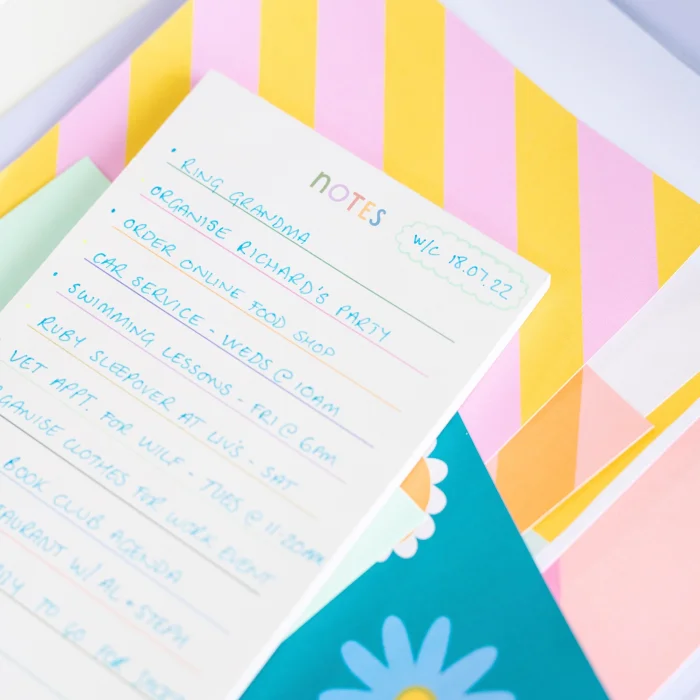 NOTES
W/C 18.07.22
• RING GRANDMA
ORGANISE RICHARD'S PARTY
• ORDER ONLINE FOOD SHOP
CAR SERVICE - WEDS @ 10AM
• SWIMMING LESSONS - FRI @ 6AM
RUBY SLEEPOVER AT LIV'S - SAT
VET APPT. FOR WILF - TUES @ 11:20AM
GANISE CLOTHES FOR WORK EVENT
BOOK CLUB AGENDA
TAURANT W/ AL + STEPH
TO GO FOR